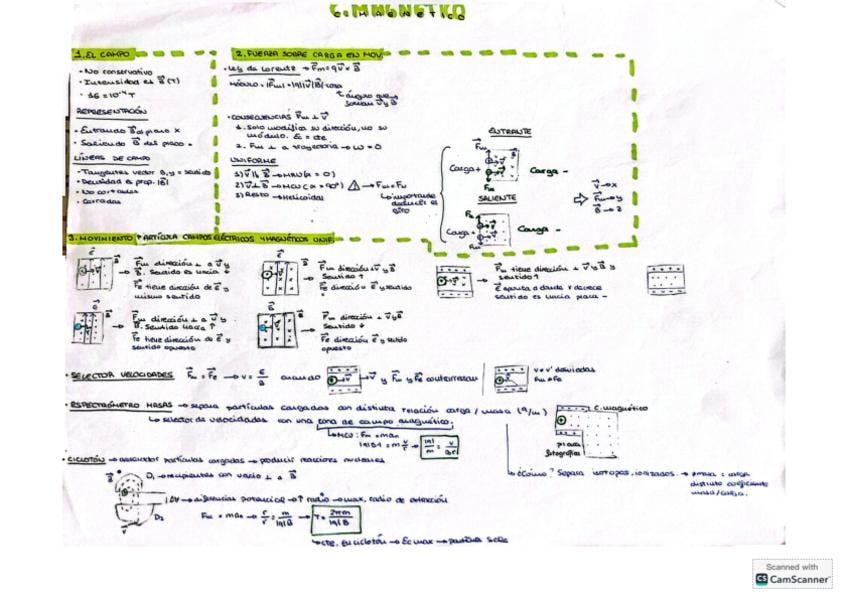 C. MAGNÉTICO
1. EL CAMPO
· No conservativo
· Intensidad es B (T)
· 1G = 10⁻⁴ T
REPRESENTACIÓN
· Entrando B al plano x
· Saliendo B del plano •
LÍNEAS DE CAMPO
· Tangentes vector B, y = sentido
· Densidad es prop. |B|
· No cortadas
· Cerradas
2. FUERZA SOBRE CARGA EN MOV.
· Ley de Lorentz → Fm = q v × B
MÓDULO = |Fm| = |q||v||B|
ángulo que
forman v y B
· CONSECUENCIAS Fm ⊥ v
1. Solo modifica su dirección, no su
módulo. Ec = cte.
2. Fm ⊥ a trayectoria → W = 0
UNIFORME
1) v ∥ B → MRU (α = 0)
2) v ⊥ B → MCU (α = 90°) → Fm = Fc
importante
deducir el
giro
3) Resto → Helicoidal
ENTRANTE
Fm
Carga +
Carga -
Fm
SALIENTE
Fm
Carga +
Carga -
Fm
v → x
Fm → y
B → z
3. MOVIMIENTO PARTÍCULA CAMPOS ELÉCTRICOS Y MAGNÉTICOS UNIF.
Fm dirección ⊥ a v y
B. Sentido es hacia ↓
Fe tiene dirección de E y
mismo sentido
Fm dirección ⊥ v y B
Sentido ↑
Fe dirección E y sentido
Fm tiene dirección ⊥ v y B y
sentido ↑
E apunta a donde decrece
sentido es hacia placa -
Fm dirección ⊥ a v y
B. Sentido hacia ↑
Fe tiene dirección de E y
sentido opuesto
Fm dirección ⊥ v y B
Sentido ↓
Fe dirección E y sentido
opuesto
· SELECTOR VELOCIDADES Fm = Fe → v = E/B cuando
v y Fm y Fe contrarrestan
v ≠ v' desviadas
Fm ≠ Fe
· ESPECTRÓMETRO MASAS → separa partículas cargadas con distinta relación carga / masa (q/m)
selector de velocidades con una zona de campo magnético.
MCU: Fm = m an
|q|B = m v/r → |q|/m = v/Br
C. magnético
placa
fotográfica
¿Cómo? Separa isótopos, ionizados. → misma = carga
distinto coeficiente
masa/carga.
· CICLOTRÓN → acelerador partículas cargadas → producir reacciones nucleares
B
D₁ → recipientes con vacío ⊥ a B
ΔV → diferencias potencial → ↑ radio → max. radio de extracción
D₂
Fm = m an → r/v = m/|q|B → T = 2πm/|q|B
cte. en ciclotrón → Ec max → partícula sale
Scanned with
CS CamScanner